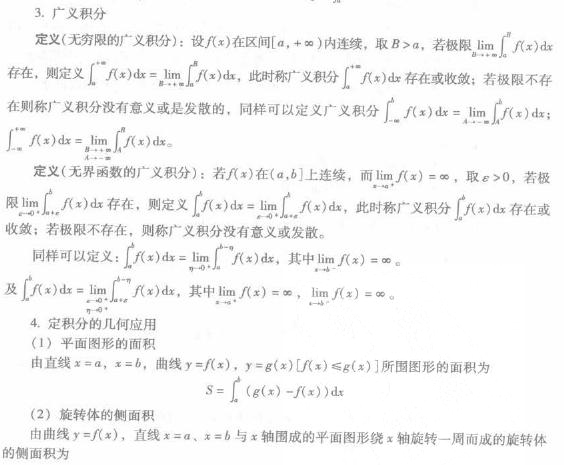 3. 广义积分
定义(无穷限的广义积分)：设f(x)在区间[a, +∞)内连续，取B>a，若极限 lim_{B→+∞} ∫_a^B f(x)dx
存在，则定义∫_a^{+∞} f(x)dx = lim_{B→+∞} ∫_a^B f(x)dx，此时称广义积分∫_a^{+∞} f(x)dx 存在或收敛；若极限不存
在则称广义积分没有意义或是发散的，同样可以定义广义积分∫_{-∞}^b f(x)dx = lim_{A→-∞} ∫_A^b f(x)dx；
∫_{-∞}^{+∞} f(x)dx = lim_{B→+∞ A→-∞} ∫_A^B f(x)dx。
定义(无界函数的广义积分)：若f(x)在(a,b]上连续，而lim_{x→a⁺} f(x) = ∞，取ε>0，若极
限lim_{ε→0⁺} ∫_{a+ε}^b f(x)dx 存在，则定义∫_a^b f(x)dx = lim_{ε→0⁺} ∫_{a+ε}^b f(x)dx，此时称广义积分∫_a^b f(x)dx 存在或
收敛；若极限不存在，则称广义积分没有意义或发散。
同样可以定义：∫_a^b f(x)dx = lim_{η→0⁺} ∫_a^{b-η} f(x)dx，其中lim_{x→b⁻} f(x) = ∞。
及∫_a^b f(x)dx = lim_{ε→0⁺ η→0⁺} ∫_{a+ε}^{b-η} f(x)dx，其中lim_{x→a⁺} f(x) = ∞，lim_{x→b⁻} f(x) = ∞。
4. 定积分的几何应用
(1) 平面图形的面积
由直线x=a，x=b，曲线y=f(x)，y=g(x)[f(x)≤g(x)]所围图形的面积为
S = ∫_a^b (g(x) -f(x))dx
(2) 旋转体的侧面积
由曲线y=f(x)，直线x=a、x=b与x轴围成的平面图形绕x轴旋转一周而成的旋转体
的侧面积为